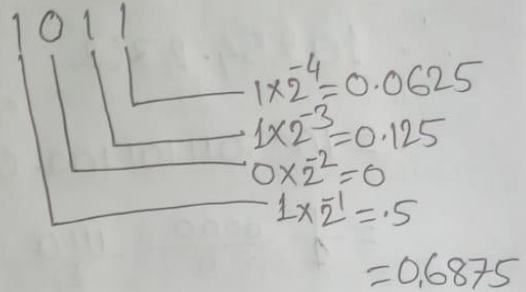 1 0 1 1
1×2⁻⁴=0.0625
1×2⁻³=0.125
0×2⁻²=0
1×2⁻¹=.5
=0.6875